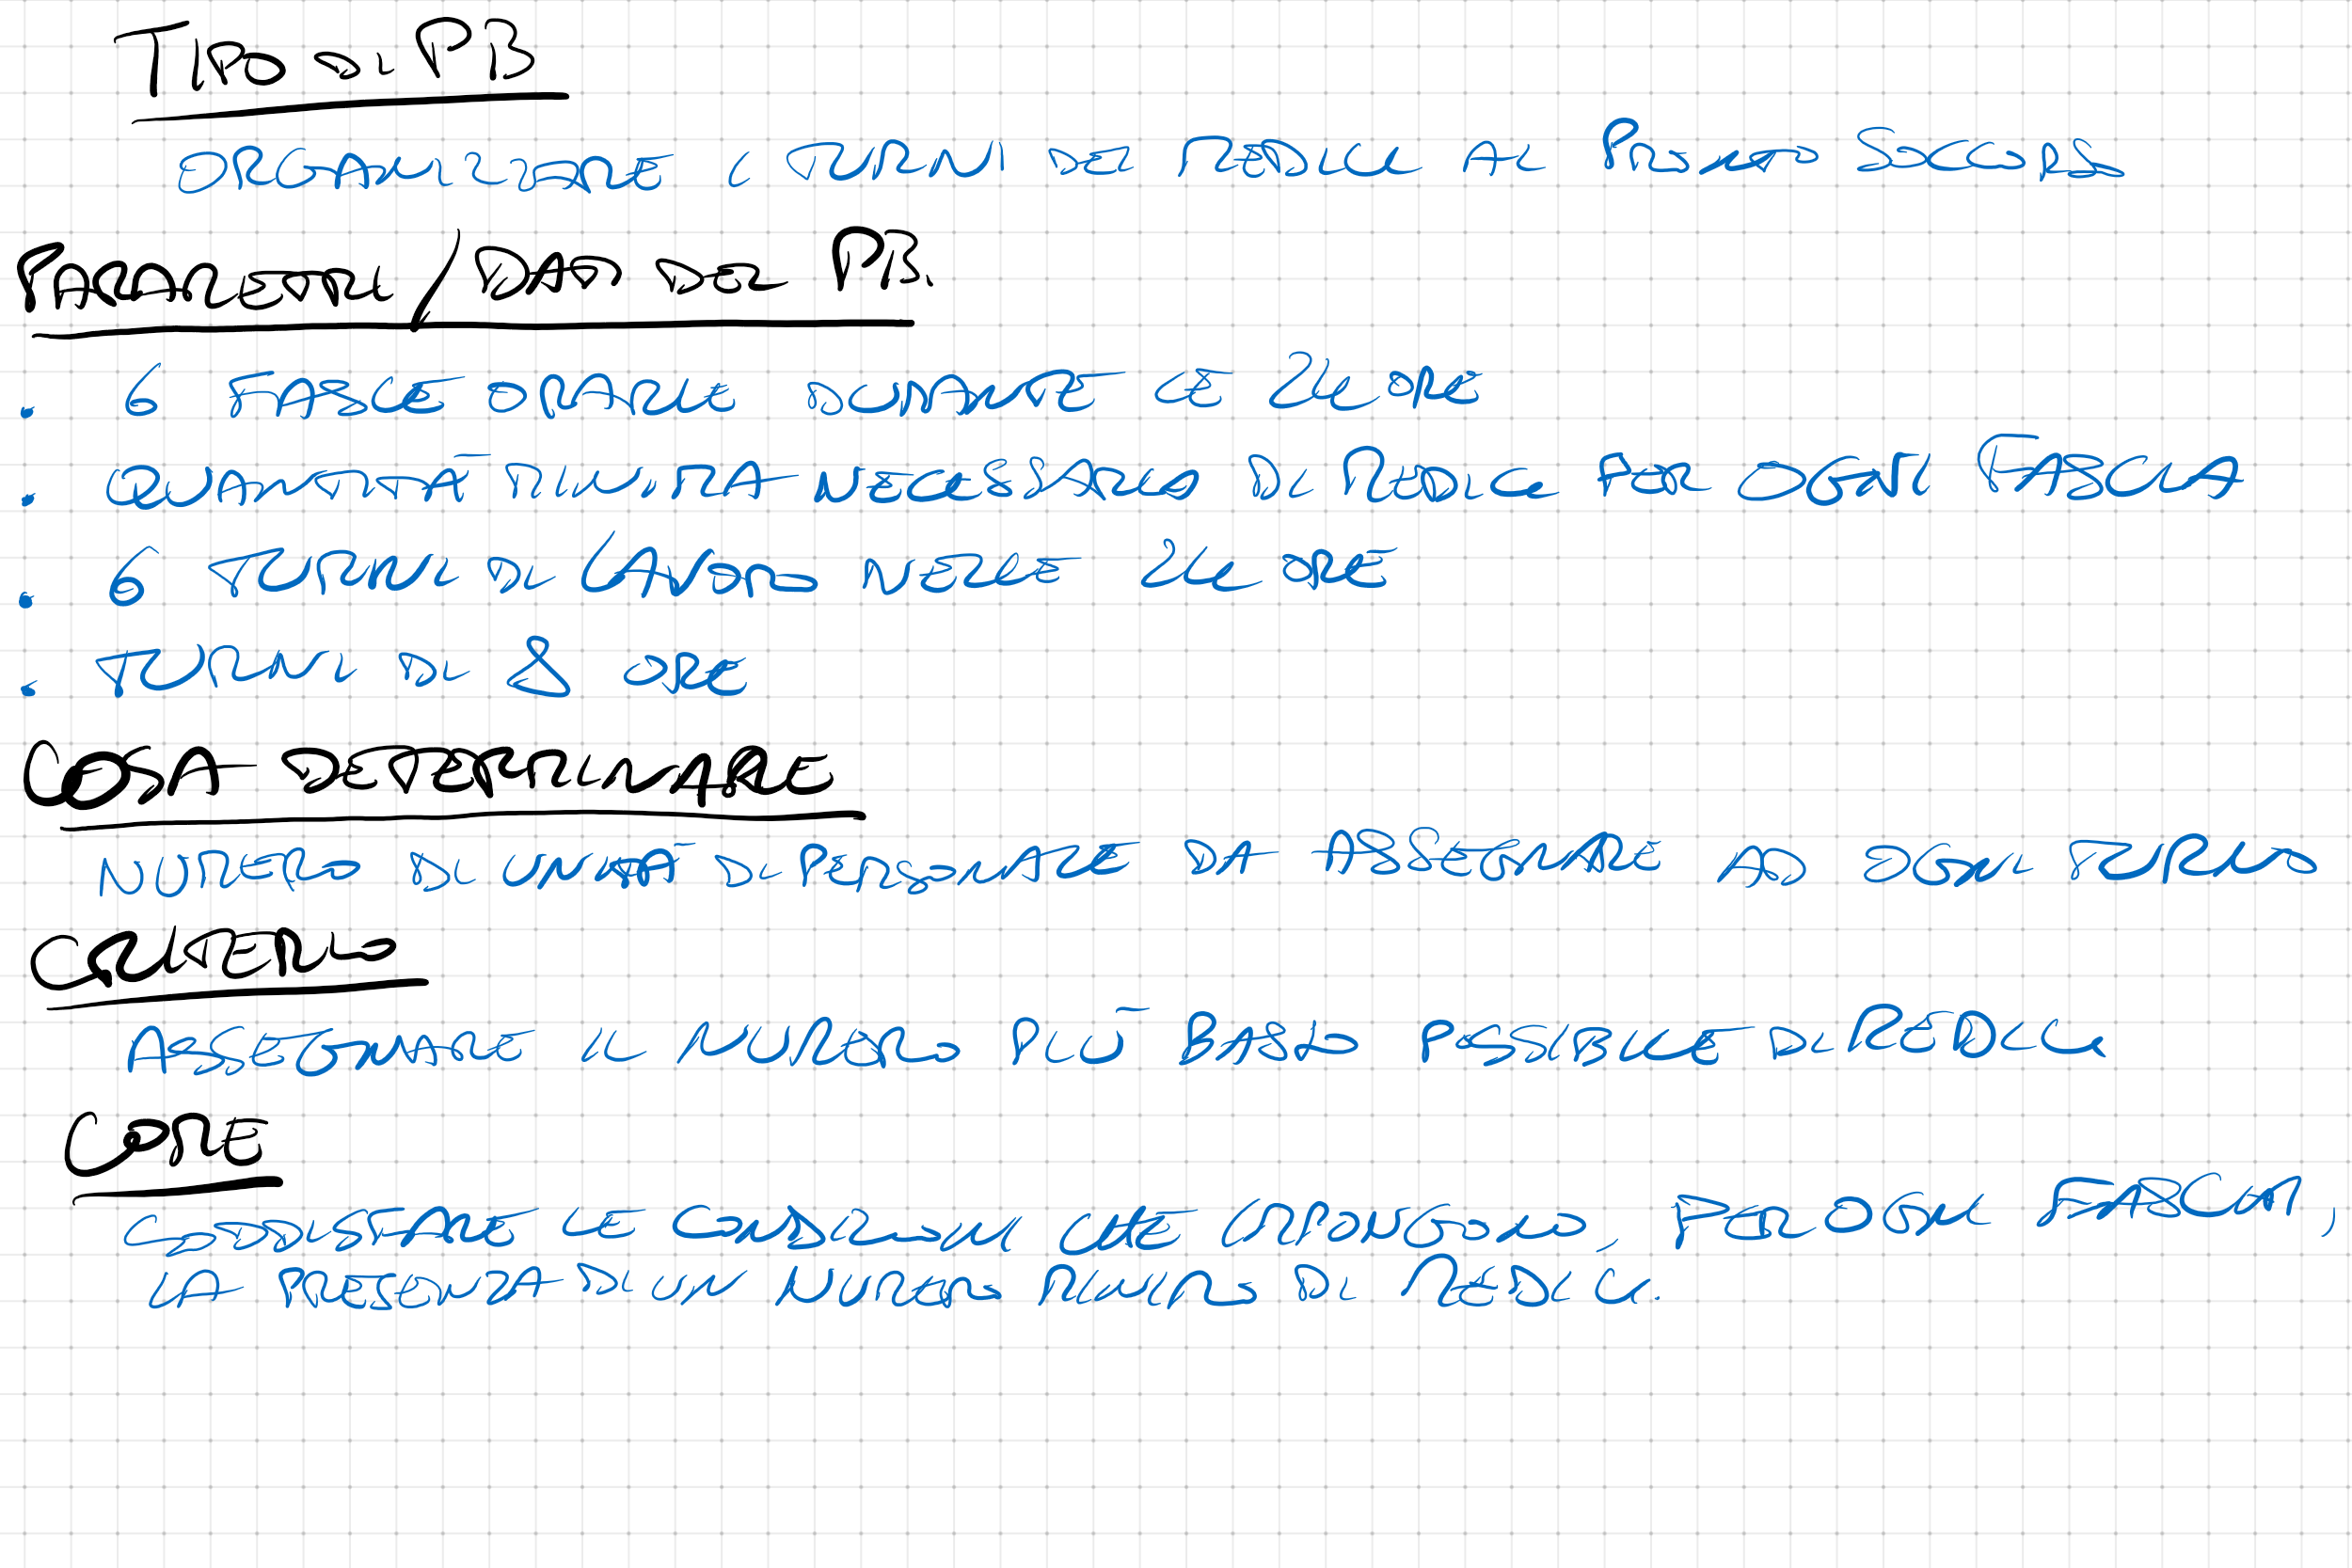 TIPO DI PB
ORGANIZZARE I TURNI DEI MEDICI AL PRIMO SOCCORSO
PARAMETRI/DATI DEL PB.
. 6 FASCE ORARIE DURANTE LE 24 ORE
. QUANTITÀ MINIMA NECESSARIA DI MEDICI PER OGNI FASCIA
. 6 TURNI DI LAVORO NELLE 24 ORE
. TURNI DI 8 ORE
COSA DETERMINARE
NUMERO DI UNITÀ DI PERSONALE DA ASSEGNARE AD OGNI TURNO
CRITERIO
ASSEGNARE IL NUMERO PIÙ BASSO POSSIBILE DI MEDICI
COME
SODDISFARE LE CONDIZIONI CHE IMPONGONO, PER OGNI FASCIA,
LA PRESENZA DI UN NUMERO MINIMO DI MEDICI.